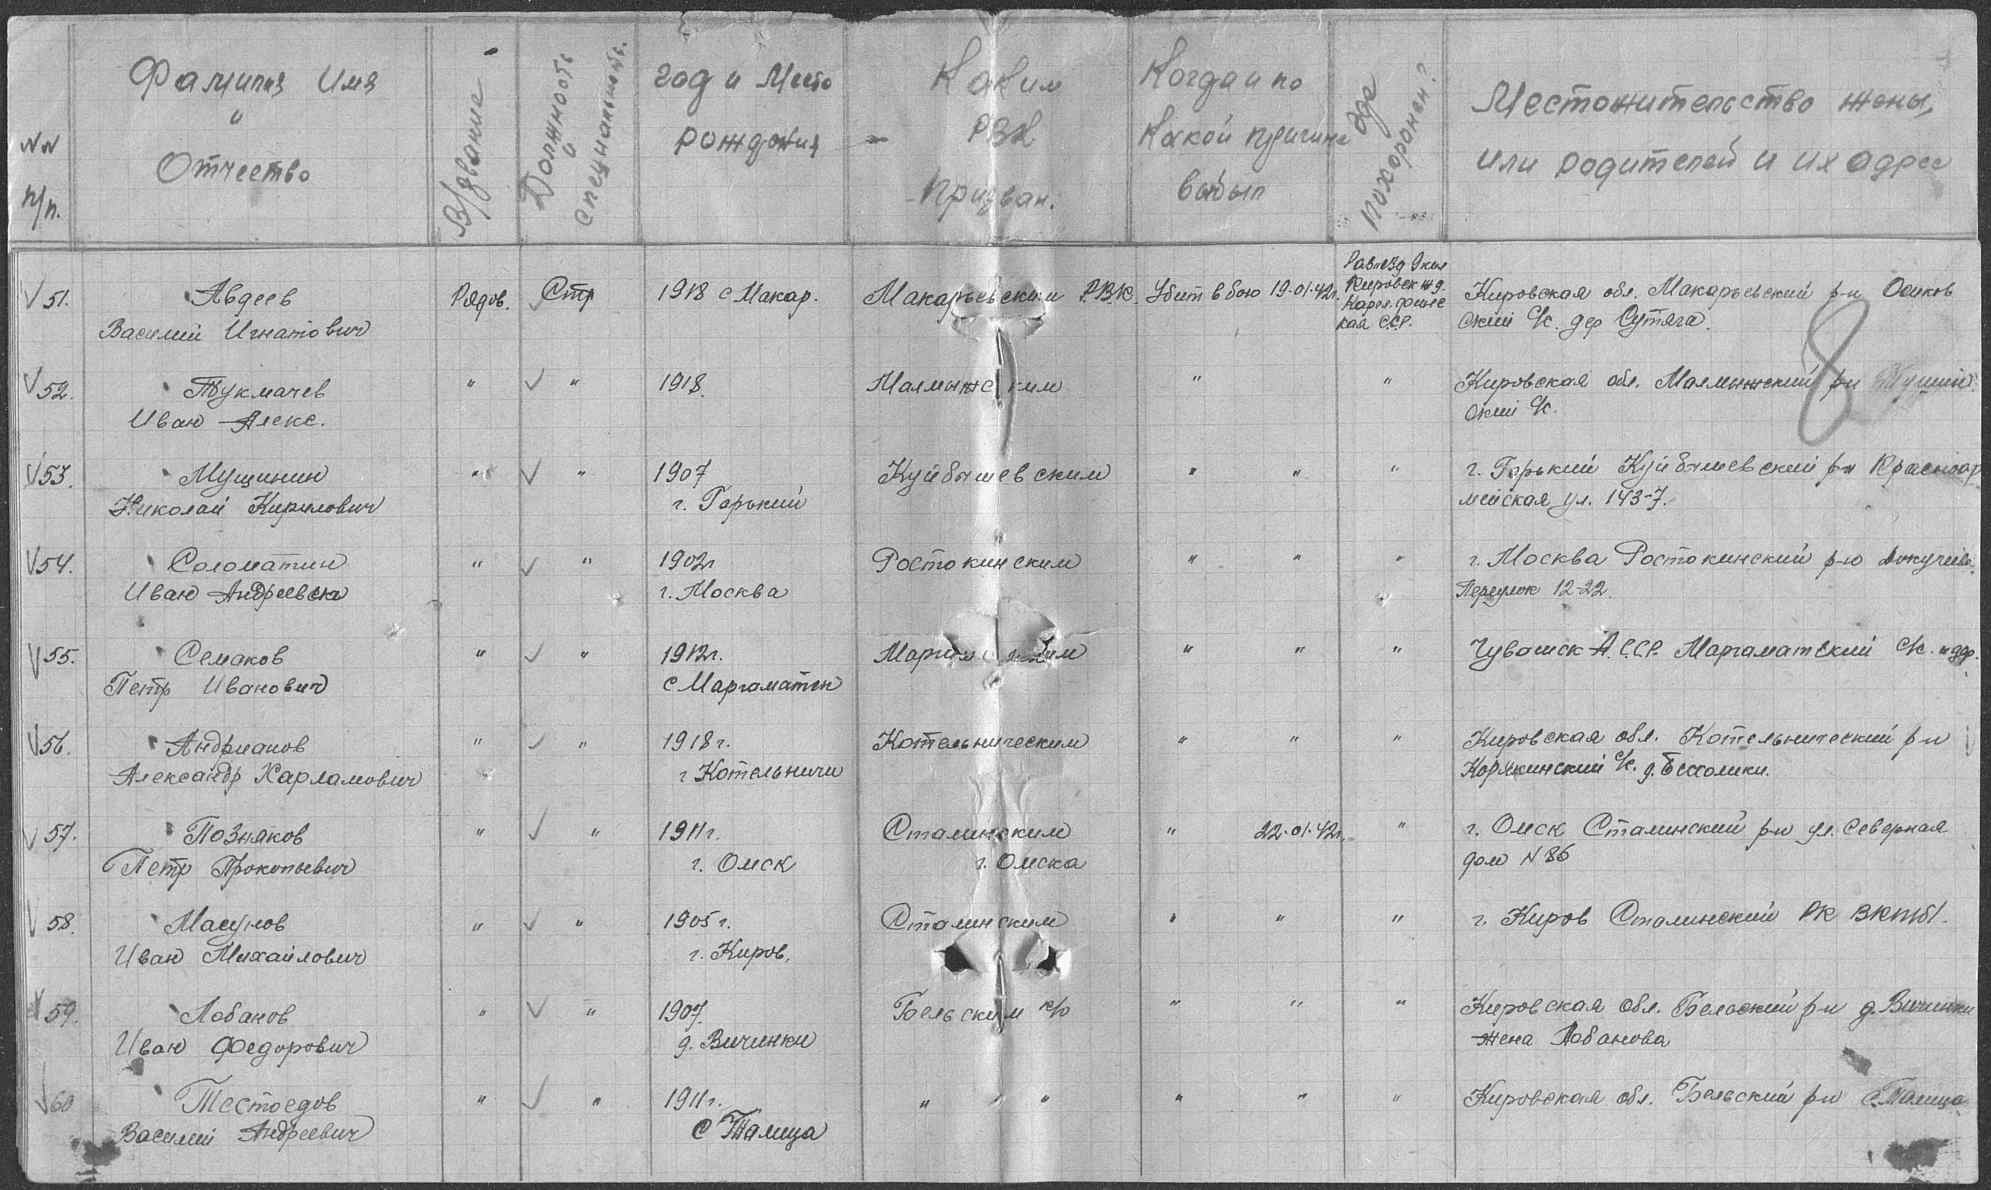 NN п/п.
Фамилия Имя и Отчество
В/звание
Должность и специальность.
Год и Место рождения
Каким РВК призван.
Когда и по какой причине выбыл
Где похоронен?
Местожительство жены, или родителей и их адрес
51. Авдеев Рядов. Стр 1918 с Макар. Макарьевским РВК Убит в бою 19.01.42г. Разъезд 9 км Кировск жд. Карел. финс кая ССР. Кировская обл. Макарьевский р-н
Василий Игнатович ский с/с. дер Сутяга.
52. Тукмачев " " 1918. Малмыжским " " Кировская обл. Малмыжский р-н
Иван Алекс. ский с/с.
53. Мущинин " " 1907 Куйбышевским " " " г. Горький Куйбышевский р-н Красноар
Николай Кирилович г. Горький мейская ул. 143-7.
54. Соломатин " " 1902г Ростокинским " " " г. Москва Ростокинский р-н Докучаев
Иван Андреевич г. Москва Переулок 12-22.
55. Семаков " " 1912г. " " " Чувашск А.С.С.Р. Маргаматский с/с.
Петр Иванович с Маргаматск
56. Андрианов " " 1918 г. Котельническим " " " Кировская обл. Котельнический р-н
Александр Харламович г Котельничи с/с. д.
57. Позняков " " 1911 г. Сталинским " 22.01.42г. " г. Омск Сталинский р-н ул. Северная
Петр Прокопьевич г. Омск г. Омска дом N 86
58. " " 1905 г. Сталинским " " " г. Киров Сталинский РК ВКП(б).
Иван Михайлович г. Киров.
59. Лобанов " " 1907. Бельским " " " Кировская обл. Бельский р-н д. Вичинки
Иван Федорович д. Вичинки жена Лобанова
60 Тестоедов " " 1911 г. " " " " " Кировская обл. Бельский р-н с. Талица
Василий Андреевич с Талица
8